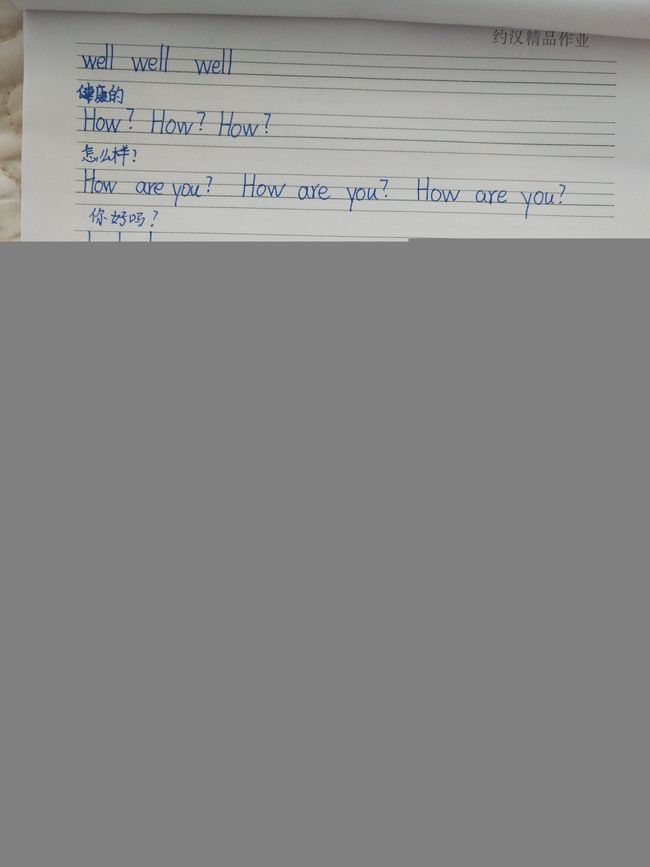 约汉精品作业
well well well
健康的
How? How? How?
怎么样?
How are you? How are you? How are you?
你好吗?